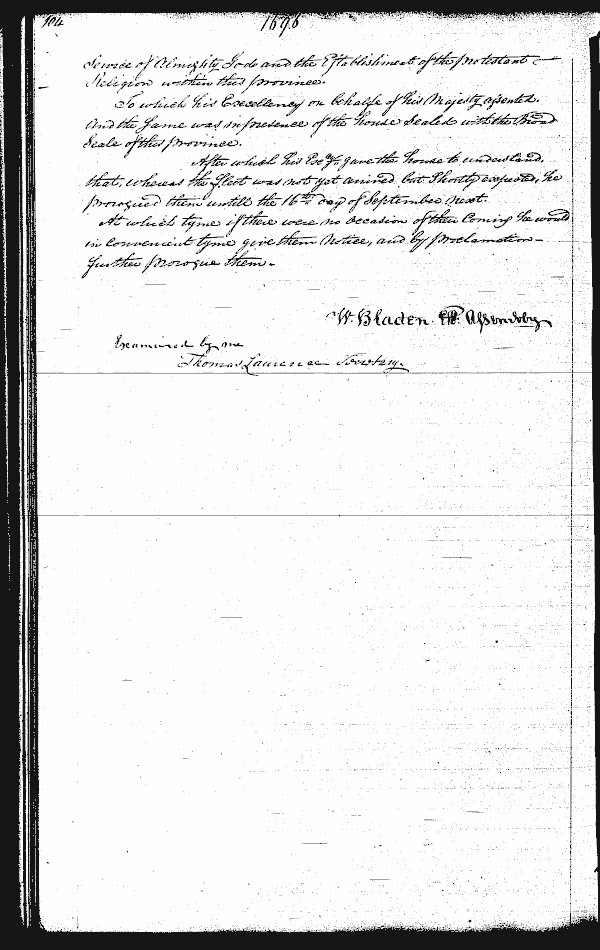 104
1696
Service of Almighty Gode and the Establishment of the protestant
Religion within this province.
To which his Excellency on behalfe of his Majesty assented.
And the same was in presence of the house Sealed with the Broad
Seale of this province.
After which his Exc.y gave the house to understand,
that, whereas the fleet was not yet arrived but Shortly expected, he
prorogued them untill the 16th day of September next.
At which tyme if there were no occasion of their Coming he would
in convenient tyme give them Notice, and by proclamation
further prorogue them.
W. Bladen Clk. Assembly
Examined by me
Thomas Laurence Secretary.